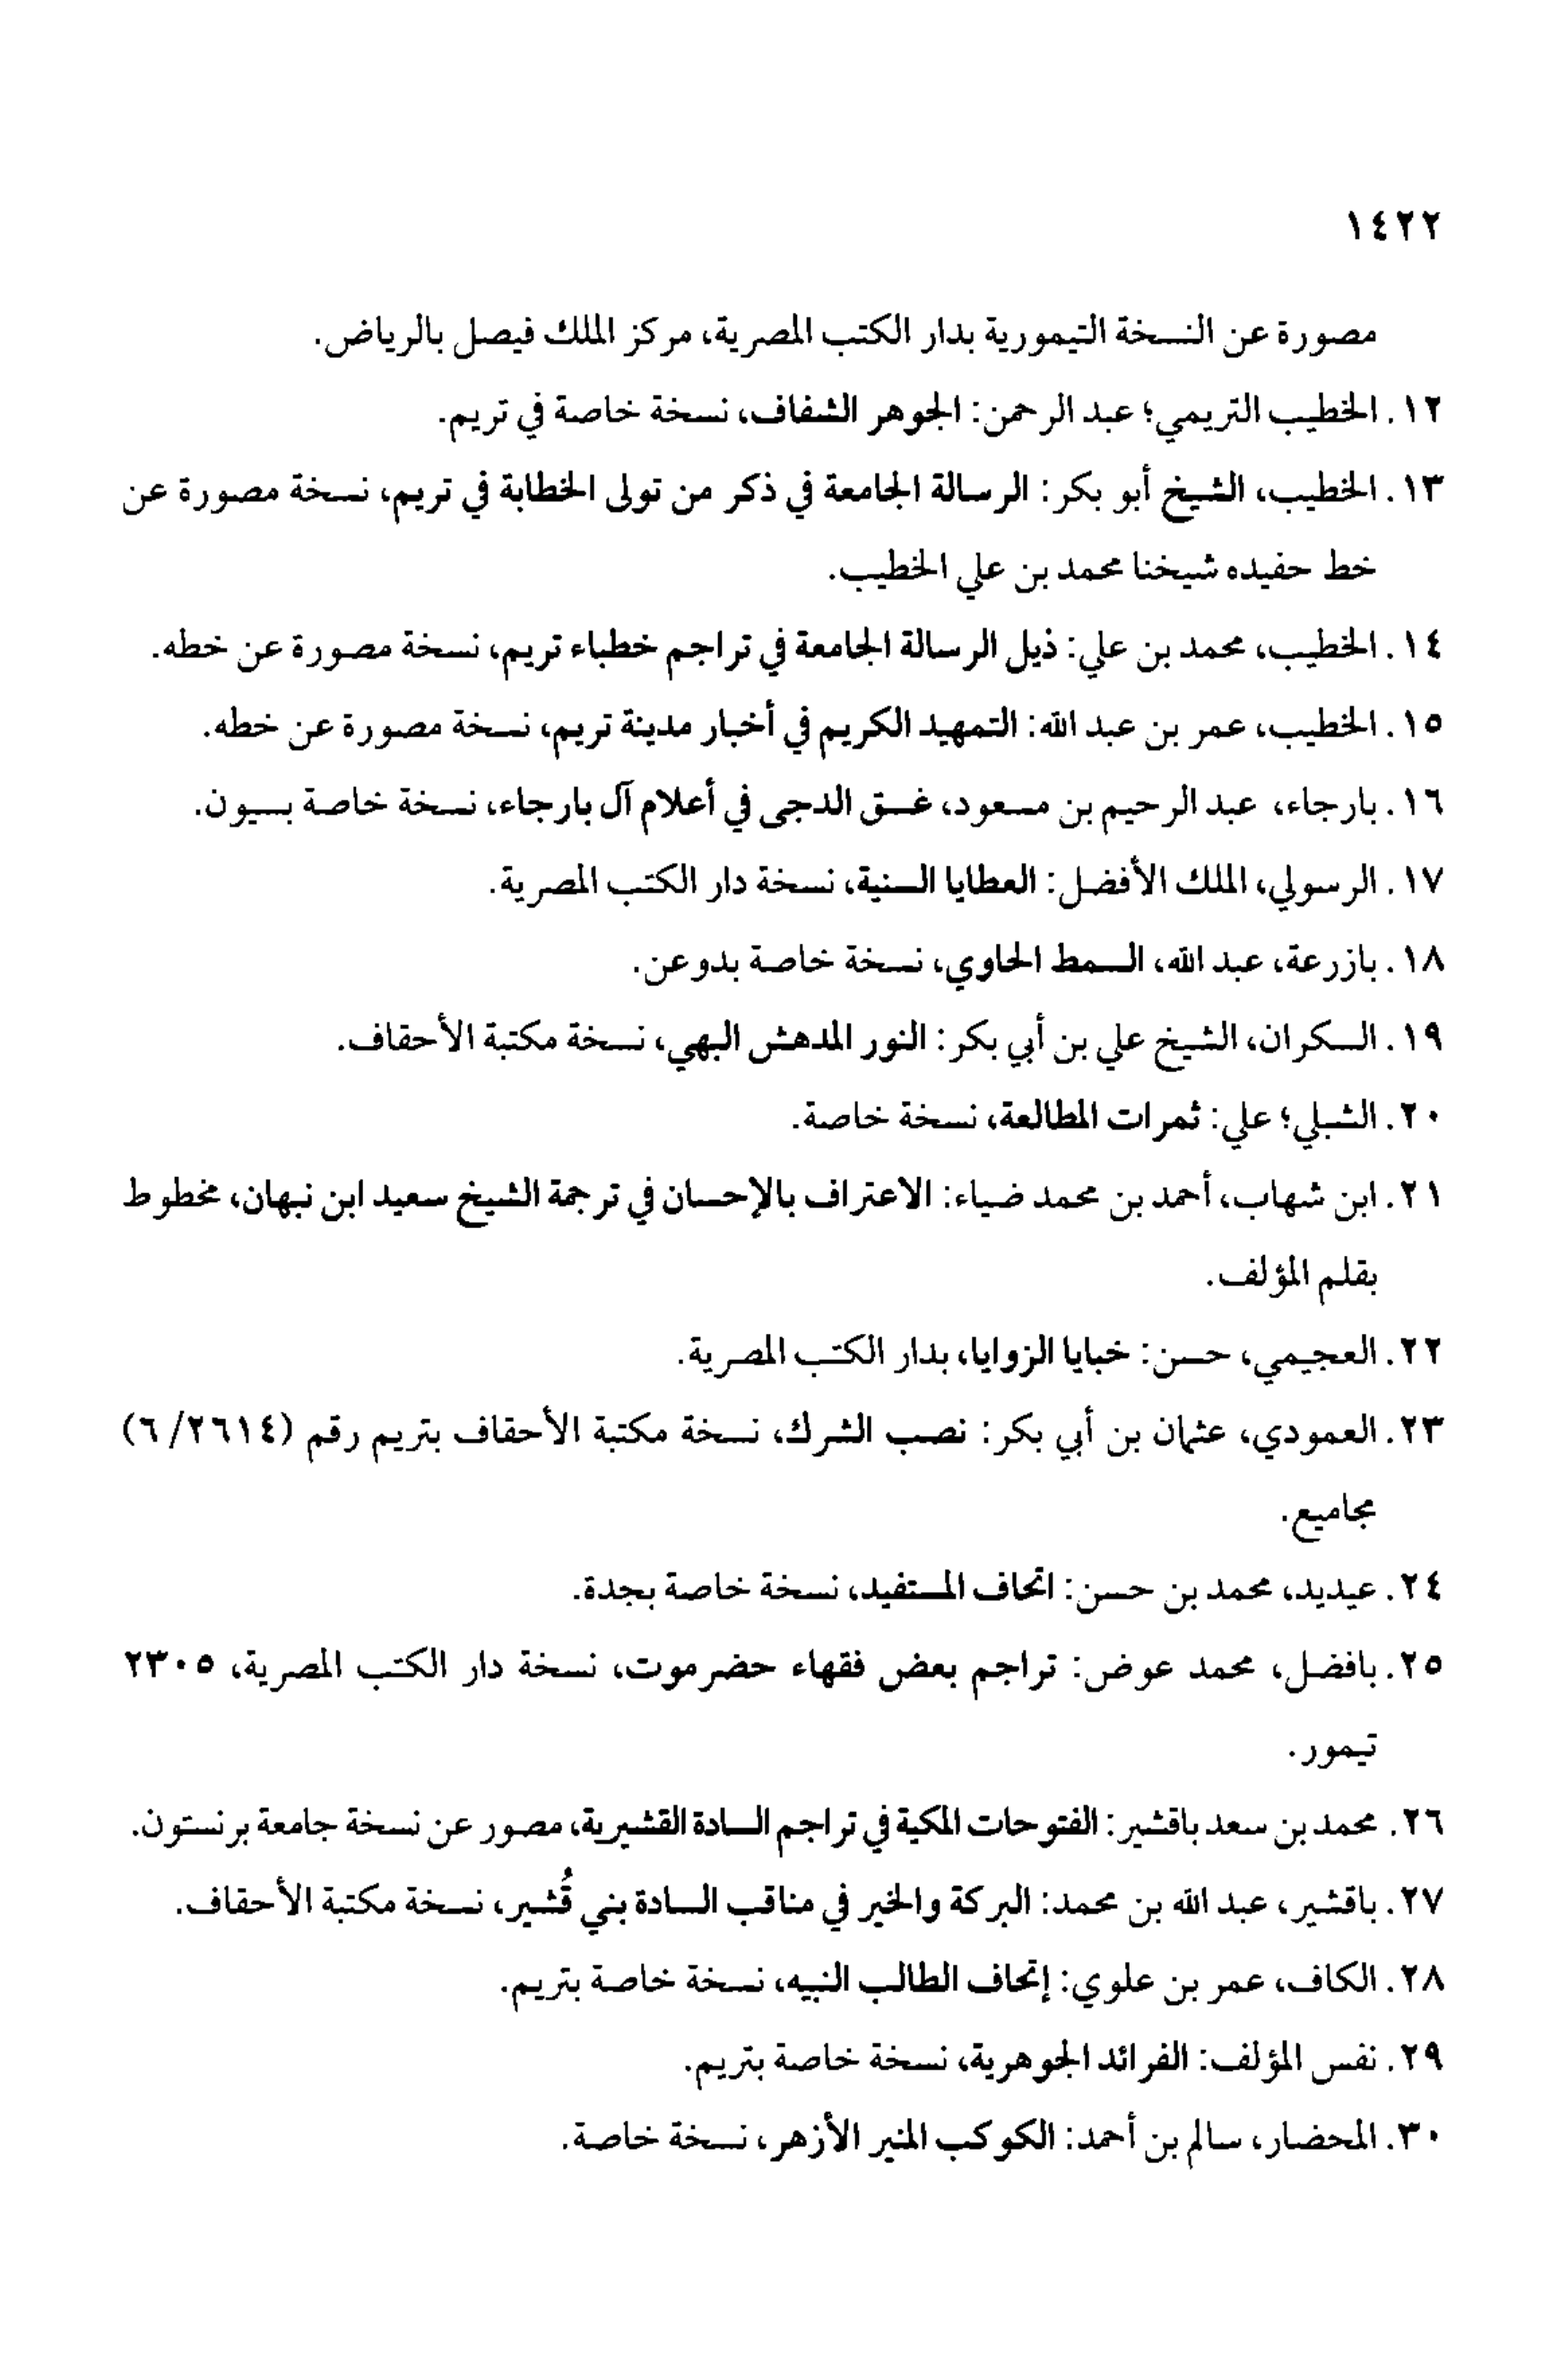 ١٤٢٢
مصورة عن النسخة التيمورية بدار الكتب المصرية، مركز الملك فيصل بالرياض.
١٢. الخطيب التريمي؛ عبد الرحمن: الجوهر الشفاف، نسخة خاصة في تريم.
١٣. الخطيب، الشيخ أبو بكر: الرسالة الجامعة في ذكر من تولى الخطابة في تريم، نسخة مصورة عن
خط حفيده شيخنا محمد بن علي الخطيب.
١٤. الخطيب، محمد بن علي: ذيل الرسالة الجامعة في تراجم خطباء تريم، نسخة مصورة عن خطه.
١٥. الخطيب، عمر بن عبد الله: التمهيد الكريم في أخبار مدينة تريم، نسخة مصورة عن خطه.
١٦. بارجاء، عبد الرحيم بن مسعود، غسق الدجى في أعلام آل بارجاء، نسخة خاصة بسيون.
١٧. الرسولي، الملك الأفضل: العطايا السنية، نسخة دار الكتب المصرية.
١٨. بازرعة، عبد الله، السمط الحاوي، نسخة خاصة بدوعن.
١٩. السكران، الشيخ علي بن أبي بكر: النور المدهش البهي، نسخة مكتبة الأحقاف.
٢٠. الشبلي؛ علي: ثمرات المطالعة، نسخة خاصة.
٢١. ابن شهاب، أحمد بن محمد ضياء: الاعتراف بالإحسان في ترجمة الشيخ سعيد ابن نبهان، مخطوط
بقلم المؤلف.
٢٢. العجيمي، حسن: خبايا الزوايا، بدار الكتب المصرية.
٢٣. العمودي، عثمان بن أبي بكر: نصب الشرك، نسخة مكتبة الأحقاف بتريم رقم (٢٦١٤/ ٦)
مجاميع.
٢٤. عيديد، محمد بن حسن: اتحاف المستفيد، نسخة خاصة بجدة.
٢٥. بافضل، محمد عوض: تراجم بعض فقهاء حضرموت، نسخة دار الكتب المصرية، ٢٣٠٥
تيمور.
٢٦. محمد بن سعد باقشير: الفتوحات المكية في تراجم السادة القشيرية، مصور عن نسخة جامعة برنستون.
٢٧. باقشير، عبد الله بن محمد: البركة والخير في مناقب السادة بني قُشير، نسخة مكتبة الأحقاف.
٢٨. الكاف، عمر بن علوي: إتحاف الطالب النبيه، نسخة خاصة بتريم.
٢٩. نفس المؤلف: الفرائد الجوهرية، نسخة خاصة بتريم.
٣٠. المحضار، سالم بن أحمد: الكوكب المنير الأزهر، نسخة خاصة.